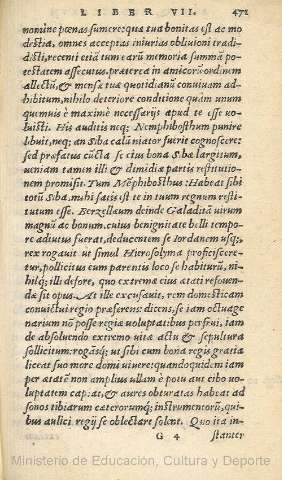 LIBER VII. 471
nomine pœnas sumere: qua tua bonitas est ac mo
destia, omnes acceptas iniurias obliuioni tradi-
disti, recenti etiā tum earū memoria summā po-
testatem assecutus. præterea in amicorū ordinem
allectū, & mensæ tuæ quotidianū conuiuam ad-
hibitum, nihilo deteriore conditione quàm unum
quemuis è maximè necessarijs apud te esse uo-
luisti. His auditis neq; Memphibosthum punire
libuit, neq; an Siba calūniator fuerit cognoscere:
sed præfatus cūcta se eius bona Sibæ largitum,
ueniam tamen illi & dimidiæ partis restitutio-
nem promisit. Tum Mēphibosthus: Habeat sibi
totū Siba, mihi satis est te in tuum regnum resti-
tutum esse. Berzellæum deinde Galaditā uirum
magnū ac bonum, cuius benignitate belli tempo-
re adiutus fuerat, deducentem se Iordanem usq;,
rex rogauit ut simul Hierosolyma proficiscere-
tur, pollicitus eum parentis loco se habiturū, ni-
hilq; illi defore, quo extrema eius ætati refouen-
dæ sit opus. At ille excusauit, rem domesticam
conuictui regio præferens: dicens, se iam octuage
narium nō posse regiæ uoluptatibus perfrui, iam
de absoluendo extremo uitæ actu & sepultura
sollicitum: rogāsq; ut sibi cum bona regis gratia
liceat suo more domi uiuere: quandoquidem iam
per ætatē non amplius ullam è potu aut cibo uo-
luptatem capiat, & aures obturatas habeat ad
sonos tibiarum cæterorumq; instrumentorū, qui-
bus aulici regij se oblectare solent. Quo ita in-
G 4 stanter
Ministerio de Educación, Cultura y Deporte